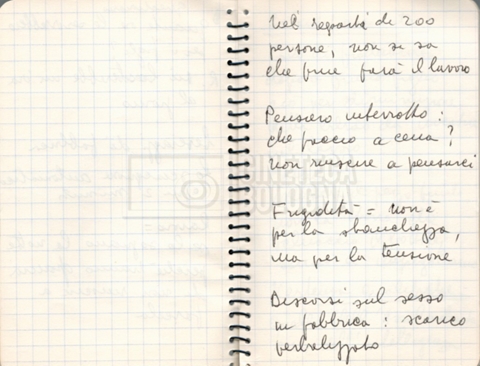 nel' reparto di 200
persone, non si sa
che fine farà il lavoro
Pensiero interrotto:
che faccio a cena?
non riuscire a pensarci
CINETECA
BOLOGNA
Frigidità = non è
per la stanchezza,
ma per la tensione
Discorsi sul sesso
in fabbrica: scarico
verbalizzato